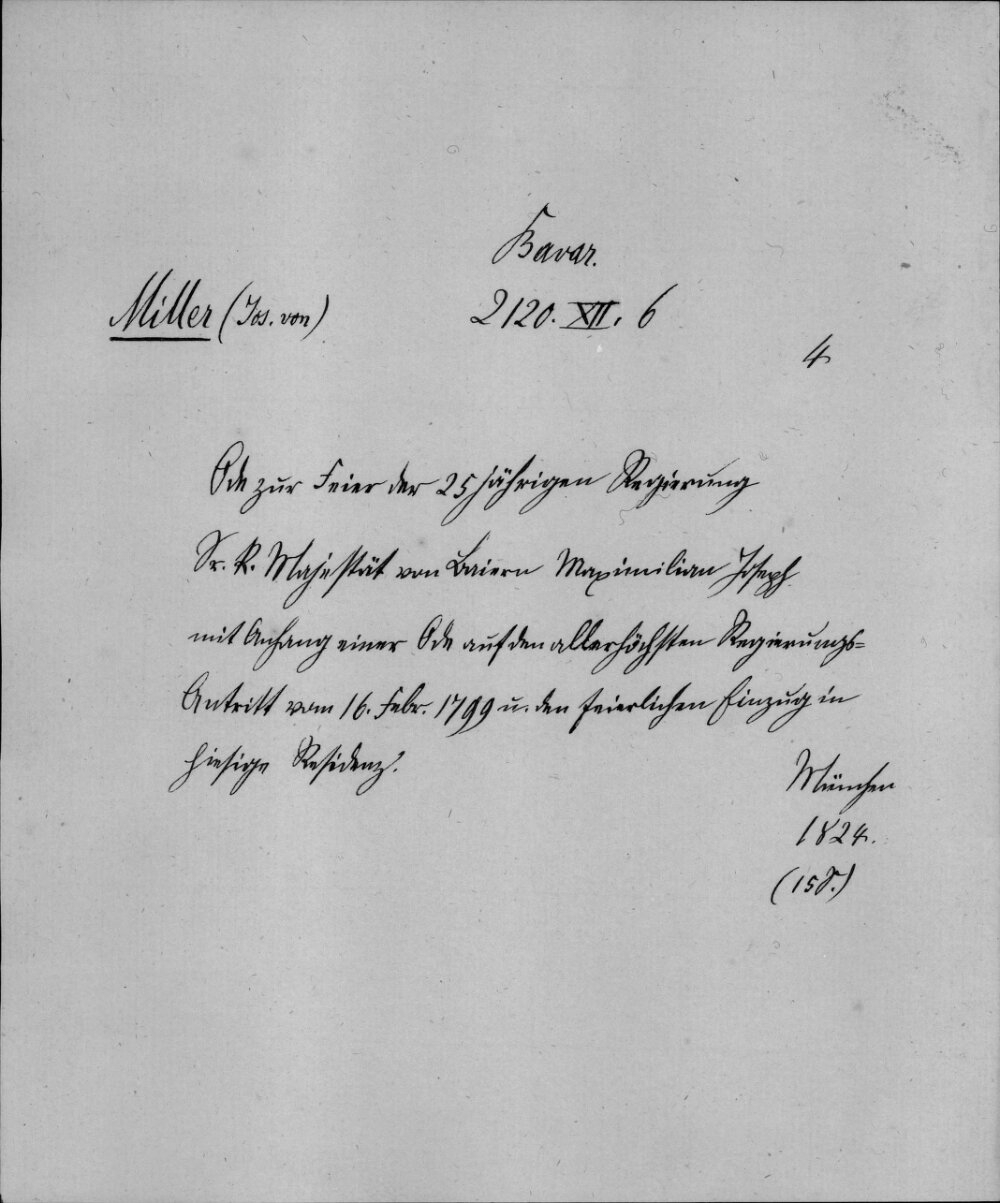 Bavar.
Miller (Jos. von)
2120. XII. 6
4
Ode zur Feier der 25jährigen Regierung
Sr. K. Majestät von Baiern Maximilian Joseph
mit Anhang einer Ode auf den allerhöchsten Regierungs=
Antritt vom 16. Febr. 1799 u. den feierlichen Einzug in
hiesige Residenz.
München
1824.
(15 S.)